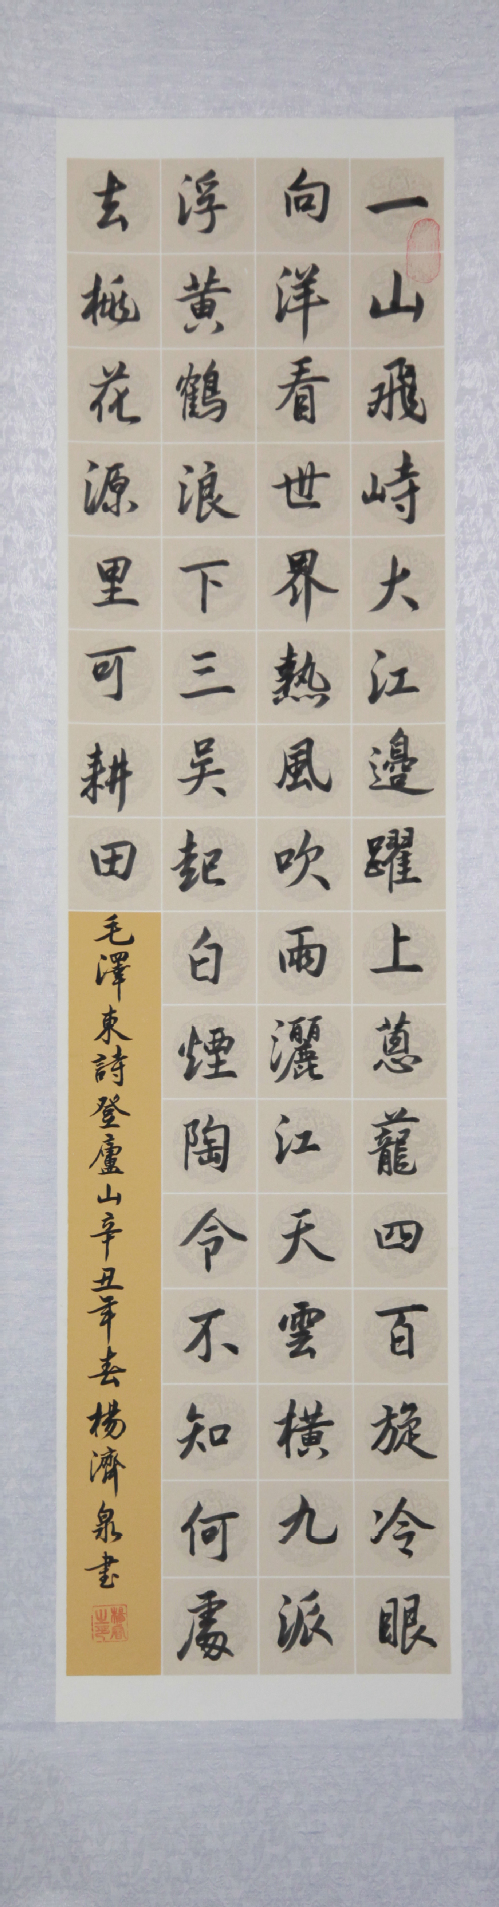 一山飛峙大江邊躍上蔥蘢四百旋冷眼
向洋看世界熱風吹雨灑江天雲橫九派
浮黃鶴浪下三吳起白煙陶令不知何處
去桃花源里可耕田
毛澤東詩登廬山辛丑年春楊濟泉書